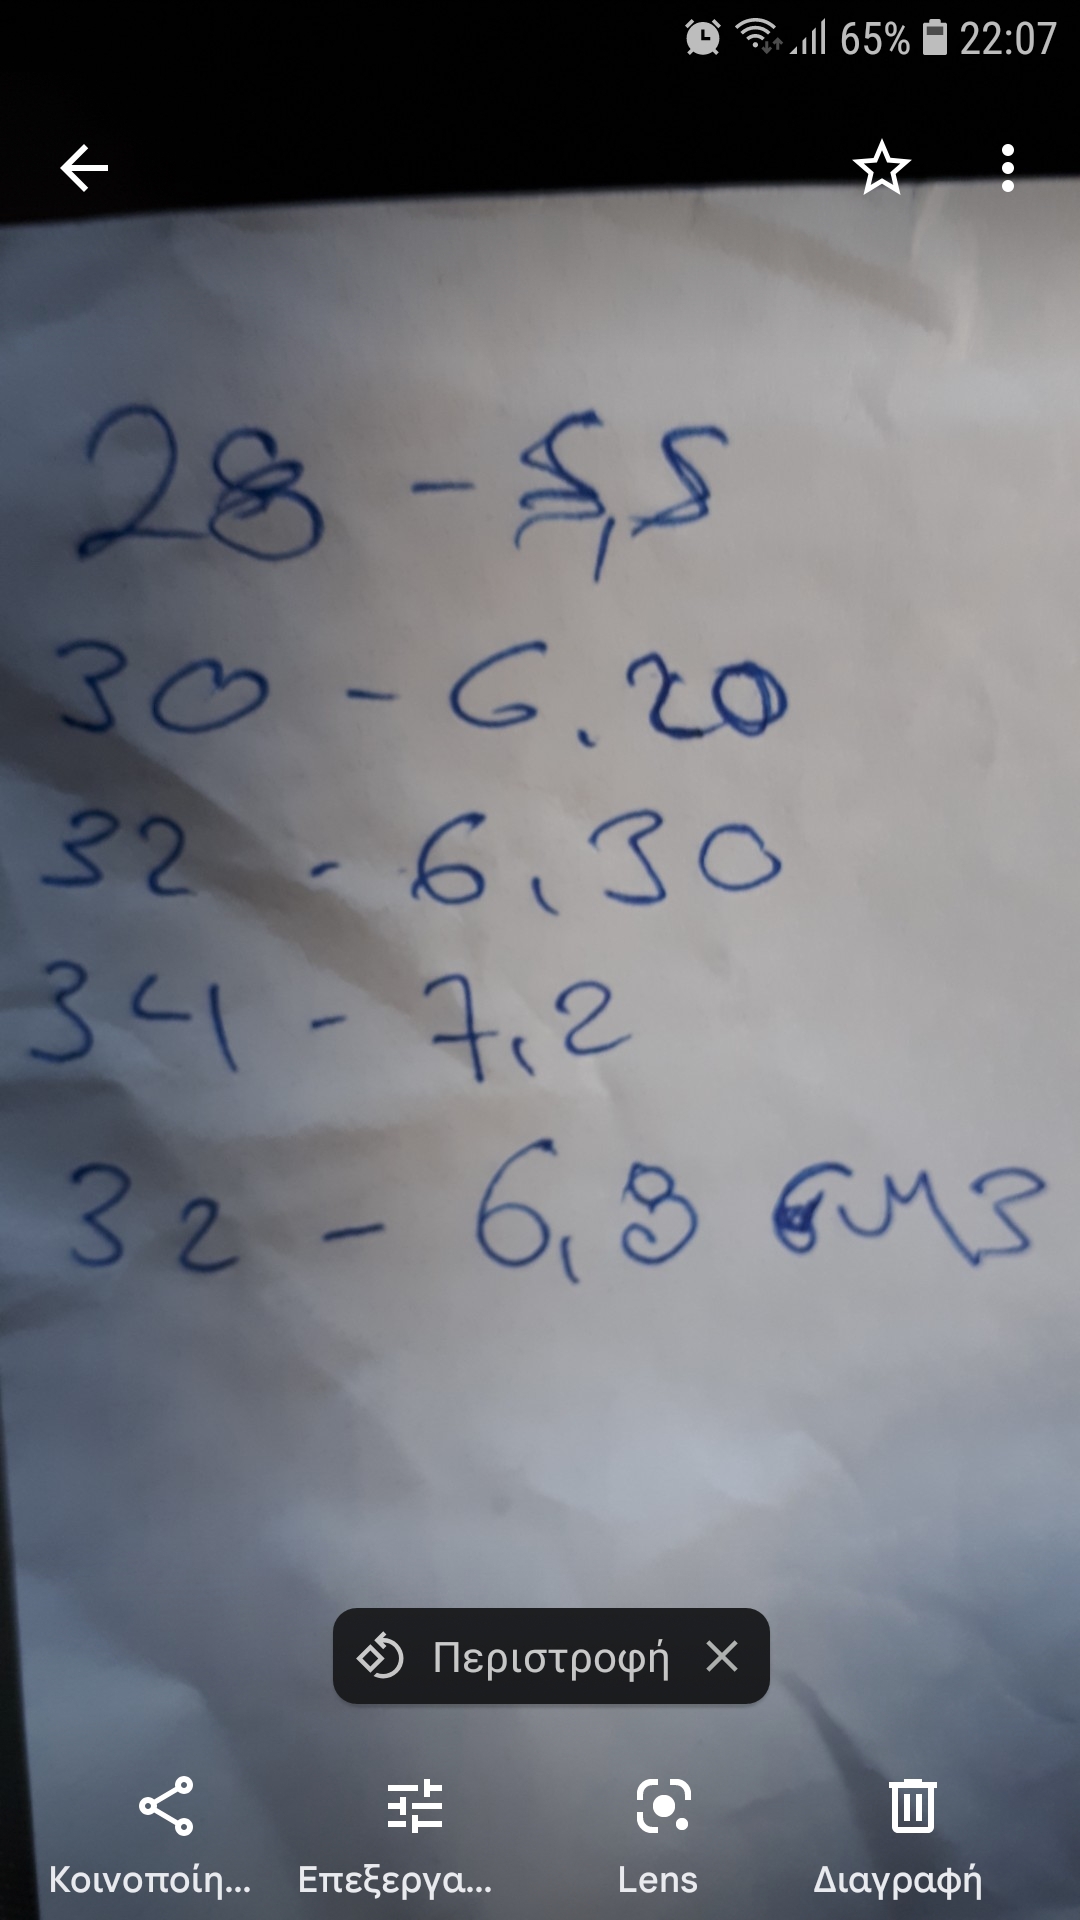 65% 22:07
28 - 5,5
30 - 6.20
32 - 6,30
34 - 7,2
32 - 6,8
Περιστροφή
Κοινοποίη...
Επεξεργα...
Lens
Διαγραφή